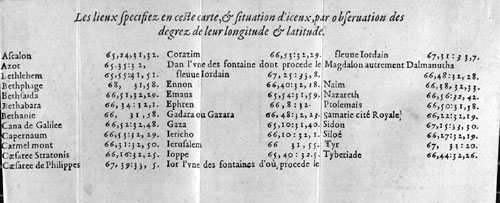 Les lieux specifiez en ceste carte, & situation d'iceux, par obseruation des
degrez de leur longitude & latitude.
Ascalon 65,24,31,32.
Azot 65.35:32,
Bethlehem 65,55:31,51.
Bethphage 68, 31,58.
Bethsaida 66,51,32,29.
Bethabara 66,34:32,1.
Bethanie 66, 31,58.
Cana de Galilee 66,52:32,48.
Capernaum 66,53:32,29.
Carmel mont 66,31:32,50.
Cæsaree Stratonis 66,16:32,25.
Cæsaree de Philippes 67,39:33, 5.
Corazim 66,53:32,29.
Dan l'vne des fontaine dont procede le
fleuue Iordain 67,25:33,8.
Ennon 66,40:32,18.
Emaus 65,54:31,59.
Ephren 66,8:32
Gadara ou Gazara 66,48:32,23.
Gaza 65,10:31,40.
Iericho 66,10:32,1.
Ierusalem 66 31,55.
Ioppe 65,40:32.5.
Ior l'vne des fontaines d'où, procede le
fleuue Iordain 67,31:33,7.
Magdalon autrement Dalmanutha
66,48:32,28.
Naim 66,38,32,33.
Nazareth 66,56:32,42.
Ptolemais 66,50:31,58.
Samarie cité Royale 66,22:32,19.
Sidon 67,15:33,30.
Siloé 66,27:32,19.
Tyr 67, 33:20.
Tyberiade 66,44:32,26.